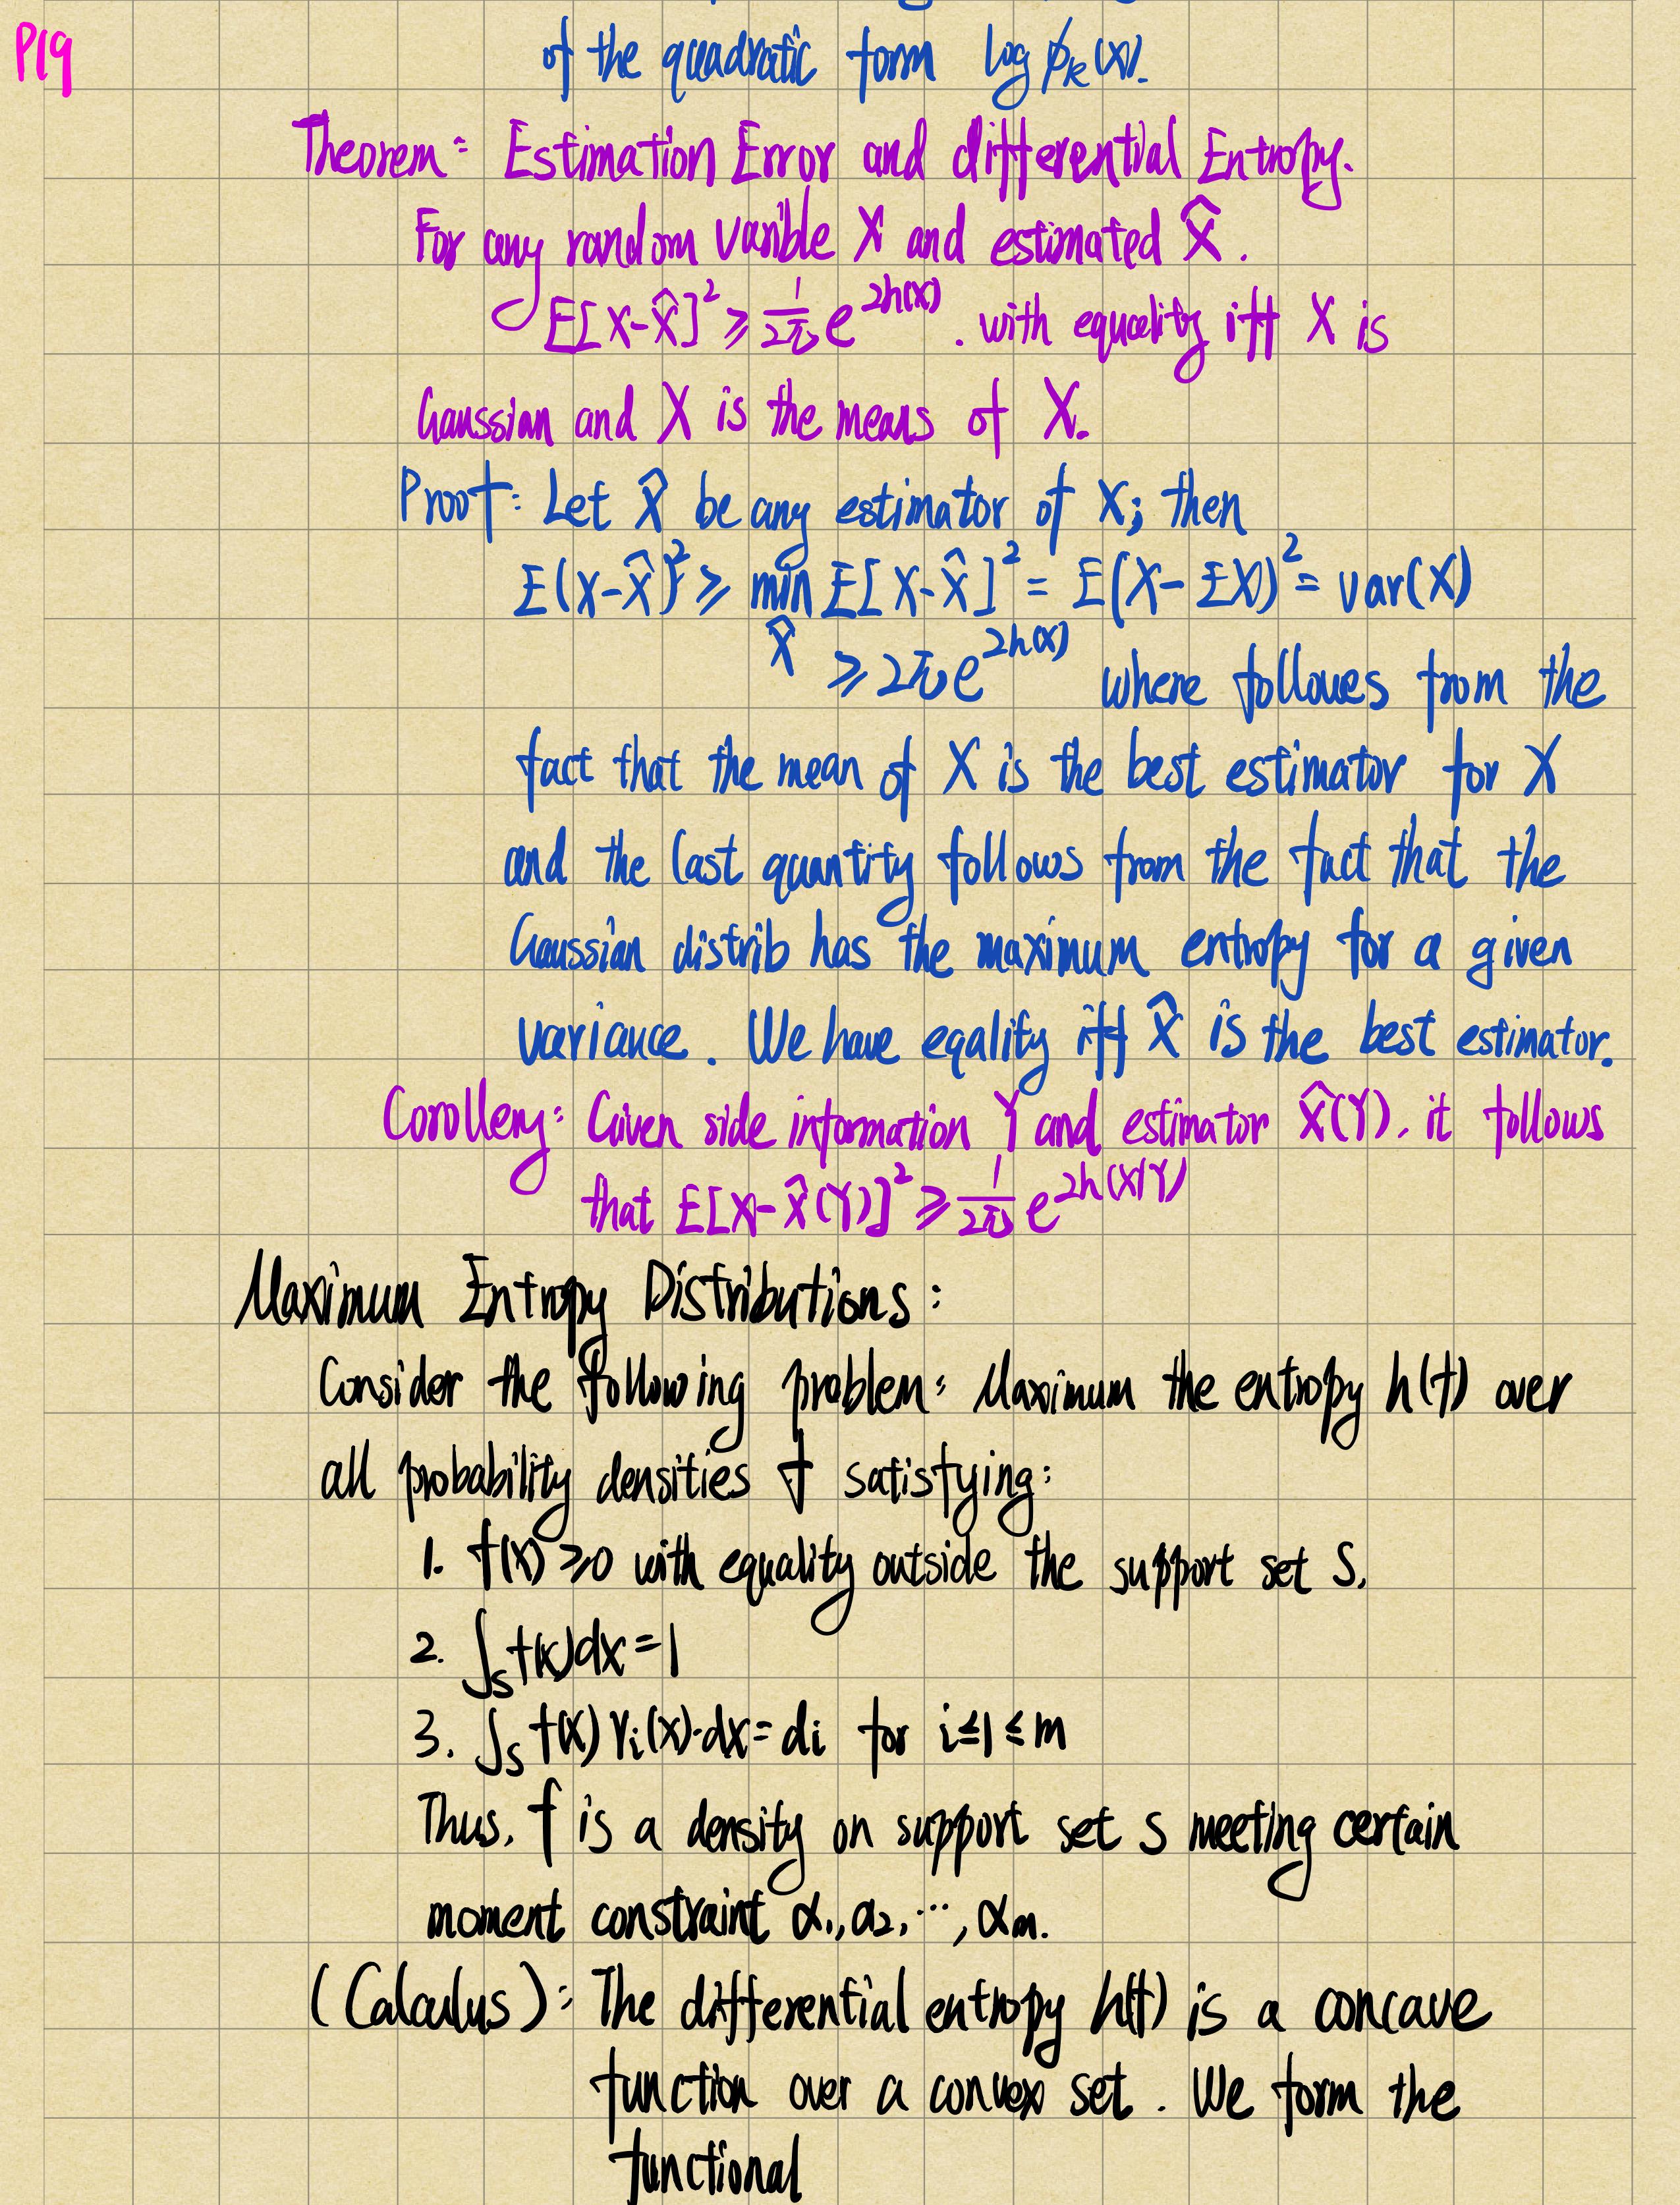 P19
of the quadratic form log ϕₖ(x).
Theorem: Estimation Error and differential Entropy.
For any random varible X and estimated X̂.
E[X-X̂]² ≥ 1/2π e^{2h(X)}. with equality iff X is
Gaussian and X is the means of X.
Proof: Let X̂ be any estimator of X; then
E(X-X̂)² ≥ min_X̂ E[X-X̂]² = E(X-EX)² = var(X)
≥ 2π e^{2h(x)} where follows from the
fact that the mean of X is the best estimator for X
and the last quantity follows from the fact that the
Gaussian distrib has the maximum entropy for a given
variance. We have eqality iff X̂ is the best estimator.
Corollery: Given side information Y and estimator X̂(Y), it follows
that E[X-X̂(Y)]² ≥ 1/2π e^{2h(X|Y)}
Maximum Entropy Distributions:
Consider the following problem: Maximum the entropy h(f) over
all probability densities f satisfying:
1. f(x) ≥0 with equality outside the support set S.
2. ∫_S f(x)dx=1
3. ∫_S f(x) γi(x)·dx=αi for i≤1≤m
Thus, f is a density on support set S meeting certain
moment constraint α₁,α₂,⋯,αm.
(Calculus): The differential entropy h(f) is a concave
function over a convex set. We form the
functional